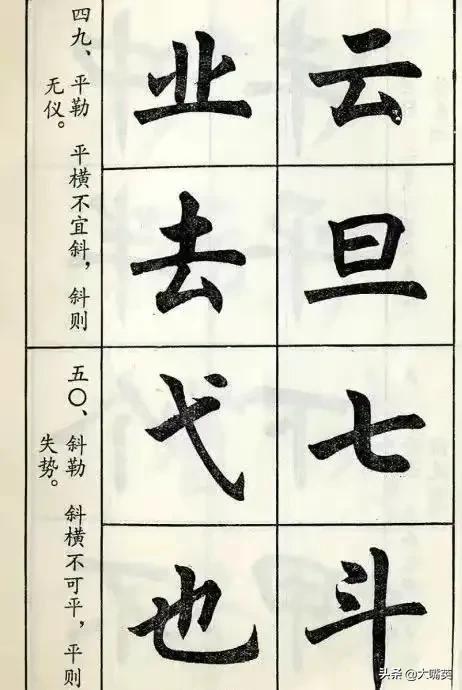 云旦七斗
业去弋也
四九、平勒 平横不宜斜，斜则
无仪。
五〇、斜勒 斜横不可平，平则
失势。
头条 @大嘴葵